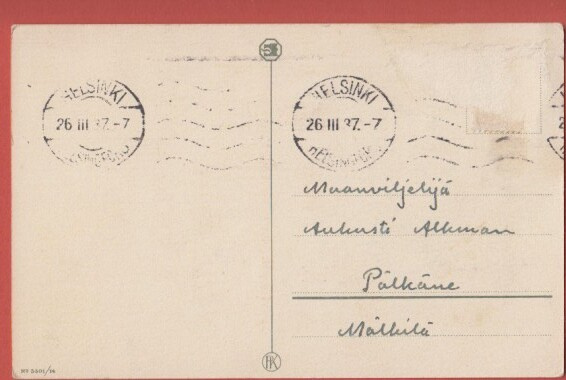 HELSINKI
26 III 37.-7
HELSINGFORS
HELSINKI
26 III 37.-7
HELSINGFORS
Maanviljelijä
Aukusti Alkman
Pälkäne
Mälkilä